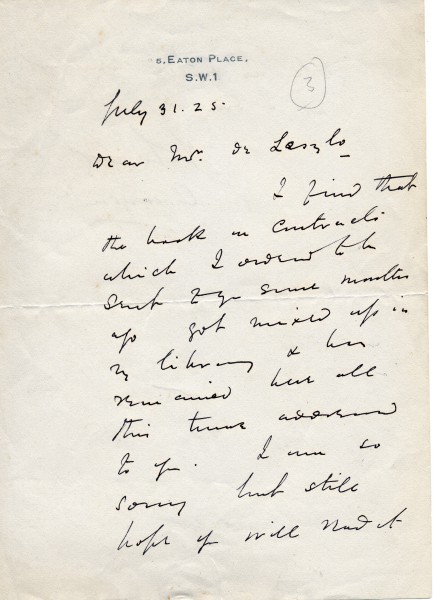 5, EATON PLACE,
S.W.1.
3
July 31. 25.
Dear Mr. de Laszlo
I find that
the book on contracts
which I ordered to be
sent to you some months
ago got mixed up in
my library & has
remained here all
this time addressed
to you. I am so
sorry but still
hope you will read it